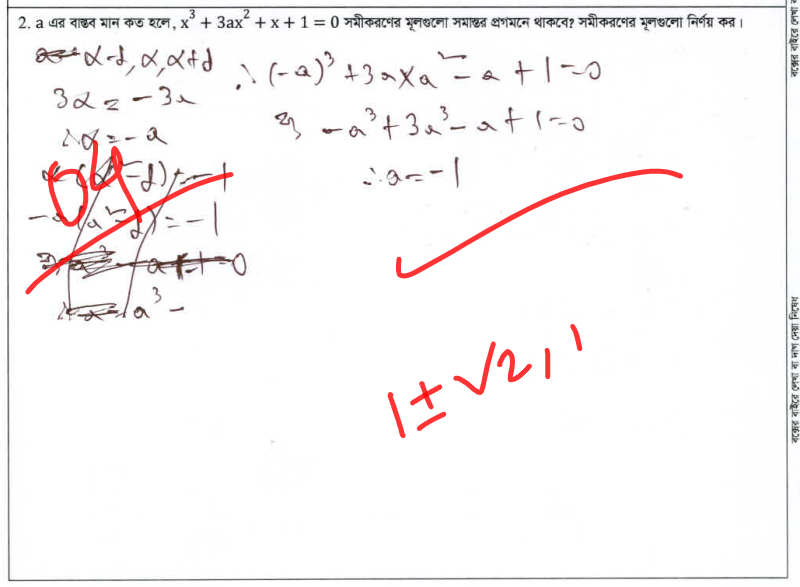 2. a এর বাস্তব মান কত হলে, x³ + 3ax² + x + 1 = 0 সমীকরণের মূলগুলো সমান্তর প্রগমনে থাকবে? সমীকরণের মূলগুলো নির্ণয় কর।
α-d, α, α+d
3α = -3a
∴ α = -a
04
-a(a²-d²) = -1
∴ (-a)³ + 3a×a² - a + 1 = 0
⇒ -a³ + 3a³ - a + 1 = 0
∴ a = -1
1 ± √2, 1
বক্সের বাইরে লেখা বা দাগ দেয়া নিষেধ